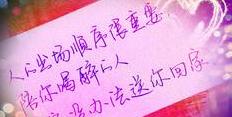 人的出场顺序很重要
陪你喝醉的人
没办法送你回家